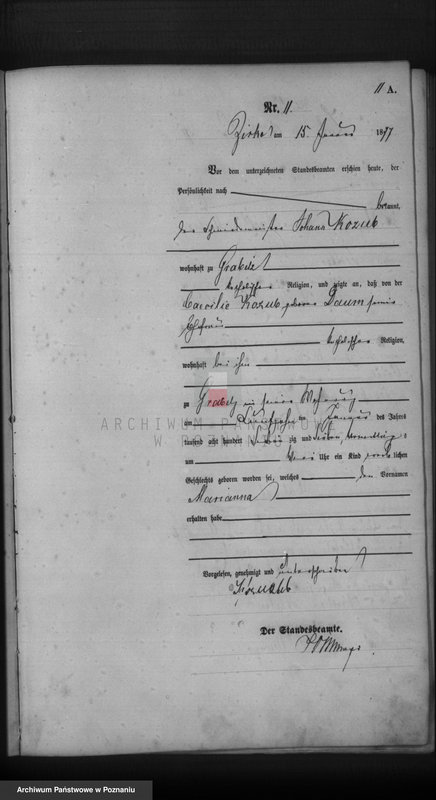 11 A.
Nr. 11.
Zirke am 15 Januar 1877
Vor dem unterzeichneten Standesbeamten erschien heute, der
Persönlichkeit nach
bekannt,
der Johann Kozub
wohnhaft zu
katholischer Religion, und zeigte an, daß von der
Kozub geborne Daum seiner
Ehefrau
katholischer Religion,
wohnhaft bei ihm
zu in seiner Wohnung
am ten Januar des Jahres
tausend acht hundert zig und sieben, Vormittags
um drei Uhr ein Kind weiblichen
Geschlechts geboren worden sei, welches den Vornamen
Marianna
erhalten habe
Vorgelesen, genehmigt und unterschrieben
Der Standesbeamte.
ARCHIWUM PAŃSTWOWE
W POZNANIU
Archiwum Państwowe w Poznaniu